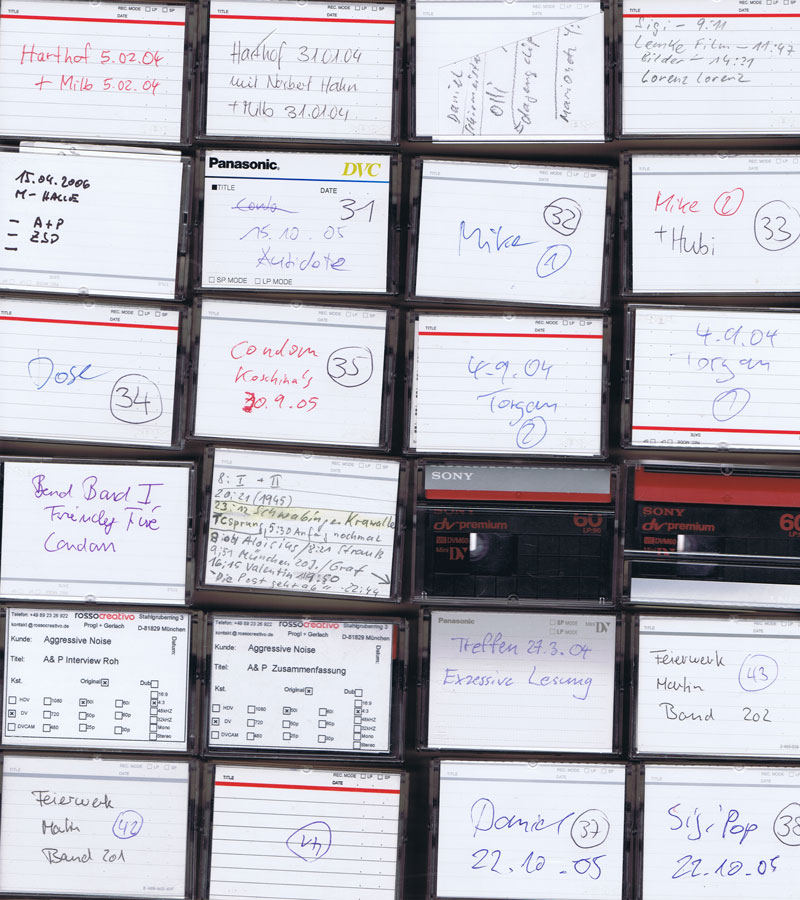 TITLE REC. MODE LP SP
DATE
Harthof 5.02.04
+ Milb 5.02.04
TITLE REC. MODE LP SP
DATE
Harthof 31.01.04
mit Norbert Hahn
+ Milb 31.01.04
REC. MODE LP SP
Daniel
Olli
REC. MODE LP SP
DATE
Sigi - 9:11
Lemke Film - 11:47
Bilder - 14:21
Lorenz Lorenz
15.04.2006
M-HALLE
- A+P
- ZSD
-
Panasonic DVC
TITLE DATE
31
15.10.05
Antidote
SP MODE LP MODE
Mike
32
1
Mike 2
+ Hubi
33
TITLE REC. MODE LP SP
DATE
Dose
34
Condom
Koschina's
30.9.05
35
TITLE REC. MODE LP SP
DATE
4.9.04
Torgau
2
4.9.04
Torgau
1
Bend Band I
Friendly Fire
Condom
8: I + II
20:21 (1945)
23:12 Schwabinger Krawalle
Tosprung 5:30 Anfang nochmal
8:04 Aloisius / 8:21 Strauß
9:51 München 20J. / Graf
16:15 Valentin 19:50
"Die Post geht ab" - 22:44
SONY
SONY
dv premium 60
LP:90
DVM60
Mini DV
SONY
dv premium 60
LP:90
DVM60
Mini DV
Telefon: +49 89 23 26 922 rossocreativo Stahlgruberring 3
kontakt@rossocreativo.de Progl + Gerlach D-81829 München
Kunde: Aggressive Noise
Datum:
Titel: A&P Interview Roh
Kst. Original Dub
HDV 1080 50i 60i 16:9
4:3
DV 720 50p 60p 48kHZ
32kHZ
DVCAM 480 25p 30p Mono
Stereo
Telefon: +49 89 23 26 922 rossocreativo Stahlgruberring 3
kontakt@rossocreativo.de Progl + Gerlach D-81829 München
Kunde: Aggressive Noise
Datum:
Titel: A&P Zusammenfassung
Kst. Original Dub
HDV 1080 50i 60i 16:9
4:3
DV 720 50p 60p 48kHZ
32kHZ
DVCAM 480 25p 30p Mono
Stereo
Panasonic SP MODE LP MODE Mini DV
Treffen 27.3.04
Exzessive Lesung
Feierwerk
Martin
Band 202
43
Feierwerk
Martin
Band 201
42
TITLE REC. MODE LP SP
DATE
44
Daniel
37
22.10.05
Sigi Pop
38
22.10.05